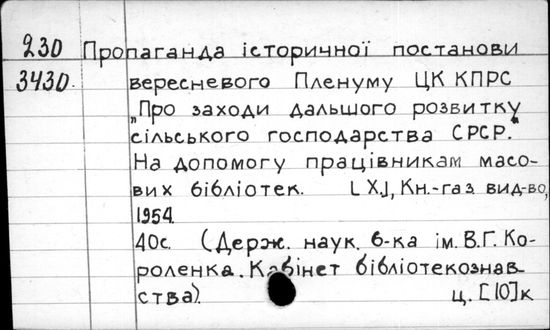 230 Пропаганда історичної постанови
3430. вересневого Пленуму ЦК КПРС
„Про заходи дальшого розвитку
сільського господарства СРСР."
На допомогу працівникам масо-
вих бібліотек. [Х.], Кн.-газ. вид-во,
1954.
40с. (Держ. наук. б-ка ім. В.Г. Ко-
роленка. Кабінет бібліотекознав-
ства).
ц. [10] к